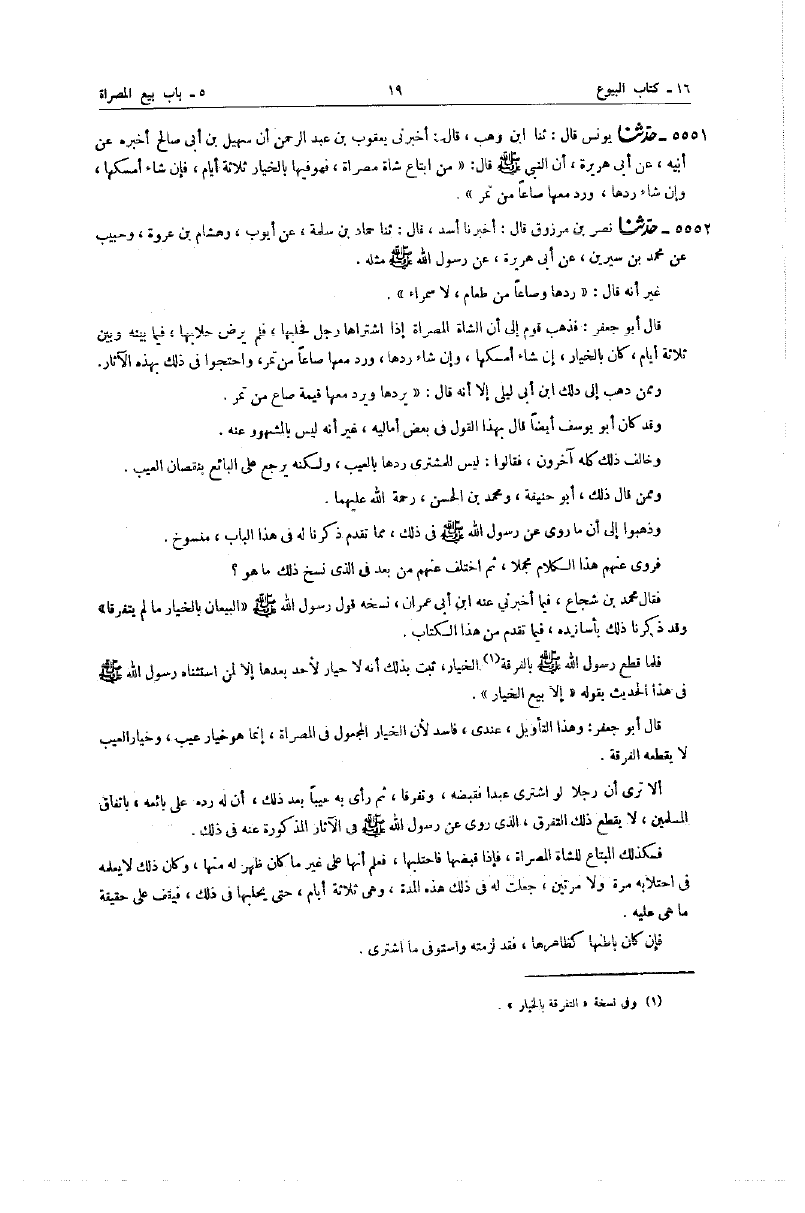 ١٦ - كتاب البيوع ١٩ ٥ - باب بيع المصراة
٥٥٥١ - حدثنا يونس قال : ثنا ابن وهب ، قال : أخبرني يعقوب بن عبد الرحمن أن سهيل بن أبى صالح أخبره عن
أبيه ، عن أبى هريرة ، أن النبي ﷺ قال : « من ابتاع شاة مصراة ، فهوفيها بالخيار ثلاثة أيام ، فإن شاء أمسكها ،
وإن شاء ردها ، ورد معها صاعاً من تمر » .
٥٥٥٢ - حدثنا نصر بن مرزوق قال : أخبرنا أسد ، قال : ثنا حماد بن سلمة ، عن أيوب ، وهشام بن عروة ، وحبيب
عن محمد بن سيرين ، عن أبى هريرة ، عن رسول الله ﷺ مثله .
غير أنه قال : « ردها وصاعاً من طعام ، لا سمراء » .
قال أبو جعفر : فذهب قوم إلى أن الشاة المصراة إذا اشتراها رجل فحلبها ، فلم يرض حلابها ، فيما بينه وبين
ثلاثة أيام ، كان بالخيار ، إن شاء أمسكها ، وإن شاء ردها ، ورد معها صاعاً من تمر، واحتجوا فى ذلك بهذه الآثار.
وممن ذهب إلى ذلك ابن أبى ليلى إلا أنه قال : « يردها ويرد معها قيمة صاع من تمر .
وقد كان أبو يوسف أيضاً قال بهذا القول فى بعض أماليه ، غير أنه ليس بالمشهور عنه .
وخالف ذلك كله آخرون ، فقالوا : ليس للمشترى ردها بالعيب ، ولكنه يرجع على البائع بنقصان العيب .
وممن قال ذلك ، أبو حنيفة ، ومحمد بن الحسن ، رحمة الله عليهما .
وذهبوا إلى أن ما روى عن رسول الله ﷺ فى ذلك ، مما تقدم ذكرنا له فى هذا الباب ، منسوخ .
فروى عنهم هذا الكلام مجملا ، ثم اختلف عنهم من بعد فى الذى نسخ ذلك ما هو ؟
فقال محمد بن شجاع ، فيما أخبرني عنه ابن أبى عمران ، نسخه قول رسول الله ﷺ «البيعان بالخيار ما لم يتفرقا»
وقد ذكرنا ذلك بأسانيده ، فيما تقدم من هذا الكتاب .
فلما قطع رسول الله ﷺ بالفرقة(١) الخيار، ثبت بذلك أنه لا خيار لأحد بعدها إلا لمن استثناه رسول الله ﷺ
فى هذا الحديث بقوله « إلا بيع الخيار » .
قال أبو جعفر: وهذا التأويل ، عندى ، فاسد لأن الخيار المجعول فى المصراة ، إنما هو خيار عيب ، وخيار العيب
لا يقطعه الفرقة .
ألا ترى أن رجلا لو اشترى عبدا فقبضه ، وتفرقا ، ثم رأى به عيباً بعد ذلك ، أن له رده على بائعه ، باتفاق
المسلمين ، لا يقطع ذلك التفرق ، الذى روى عن رسول الله ﷺ فى الآثار المذكورة عنه فى ذلك .
فكذلك المبتاع للشاة المصراة ، فإذا قبضها فاحتلبها ، فعلم أنها على غير ما كان ظهر له منها ، وكان ذلك لايعلمه
فى احتلابه مرة ولا مرتين ، جعلت له فى ذلك هذه المدة ، وهى ثلاثة أيام ، حتى يحلبها فى ذلك ، فيقف على حقيقة
ما هى عليه .
فإن كان باطنها كظاهرها ، فقد لزمته واستوفى ما اشترى .
(١) وفى نسخة « التفرقة بالخيار » .